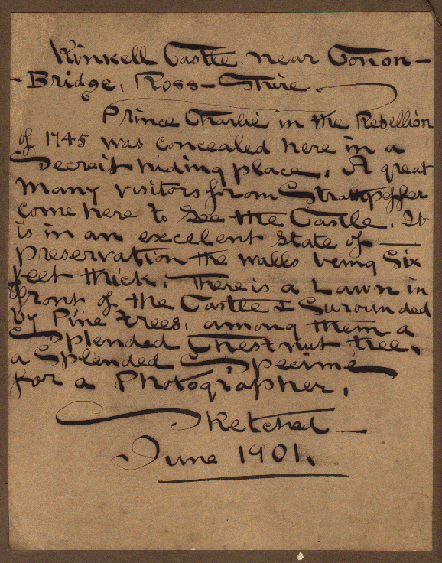 Kinkell Castle near Conon-
Bridge, Ross-Shire.
Prince Charlie in the Rebellion
of 1745 was concealed here in a
Secrait hiding place. A great
many visitors from Strathpeffer
come here to see the Castle. It
is in an excelent state of
preservation the walls being Six
feet thick. There is a Lawn in
front of the Castle & Surounded
by Pine trees, among them a
Splended Chestnut tree,
a Splended Specime
for a Photographer.
Sketched
June 1901.